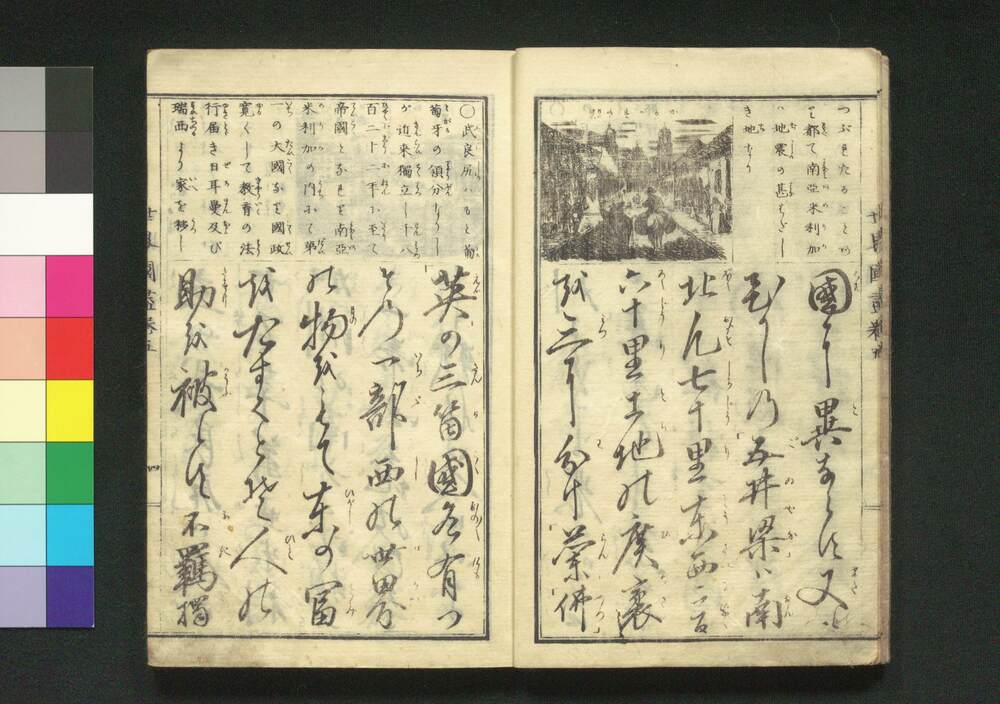 つぶれたることあ
り都て南亞米利加
ハ地震の甚はだし
き地なり
國に異ならず又
ひがしの五井梁ハ南
北凡七十里東西二百
六十里土地の廣袤
を三に分け蘭佛
世界國盡卷五
〇武良尻ハもと葡
萄牙の領分なりし
が近来獨立し千八
百二十二年に至て
帝國となれり南亞
米利加の内にて第
一の大國なり國政
寛くして教育の法
行届き日耳曼及び
瑞西より家を移し
英の三箇國各有つ
その一部西の世界
の物をもて東の富
をたすくとぞ人の
助を被らず不羈獨
世界國盡卷五
四